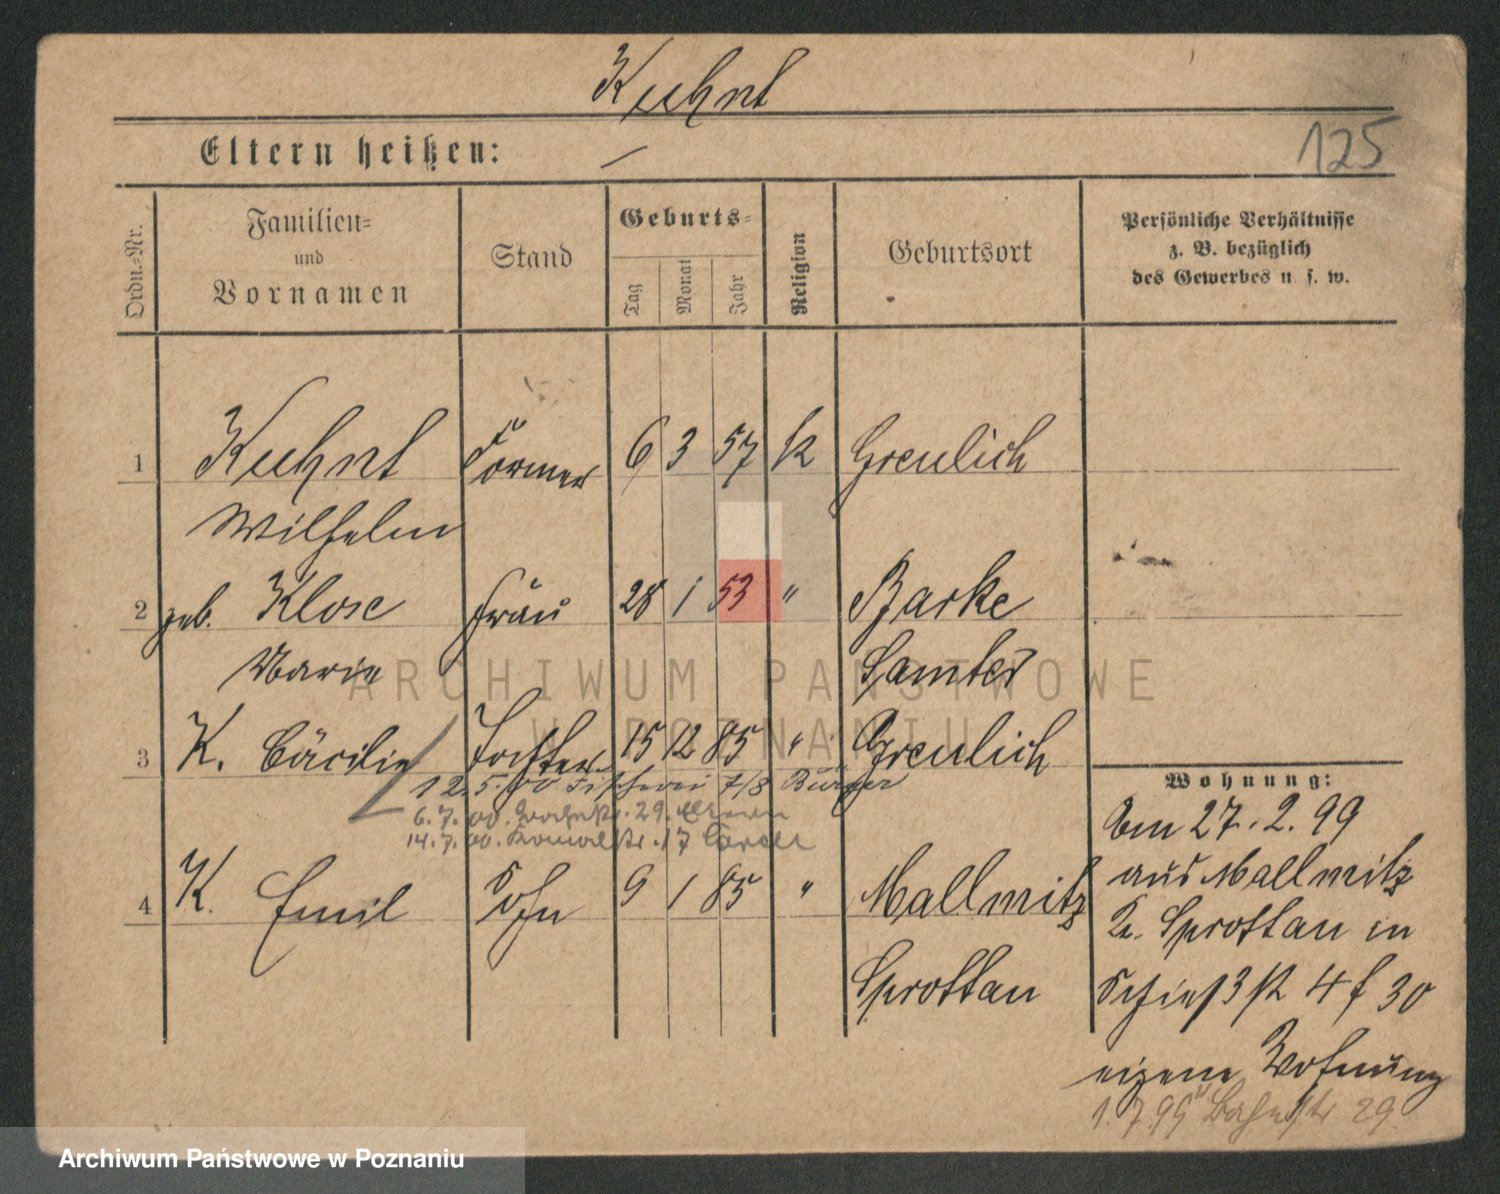 Kuhnt
Eltern heißen: —
125
Ordn.-Nr.
Familien-
und
Vornamen
Stand
Geburts-
Tag
Monat
Jahr
Religion
Geburtsort
Persönliche Verhältnisse
z. B. bezüglich
des Gewerbes u. s. w.
1 Kuhnt Former 6 3 57 k Greulich
Wilhelm
2 geb. Klose Frau 28 1 53 " Barke
Marie Samter
3 K. Cäcilie Tochter 15 12 85 " Greulich
12. 5. 00 Fischerei 7/8 Bürger
6. 7. 00. 29.
14. 7. 00. 17
4 K. Emil Sohn 9 1 85 " Mallmitz
Sprottau
Wohnung:
Am 27. 2. 99
aus Mallmitz
Kr. Sprottau in
4 f 30
eigene Wohnung
1. 7. 99 Bahnstr. 29
ARCHIWUM PAŃSTWOWE
W POZNANIU
Archiwum Państwowe w Poznaniu